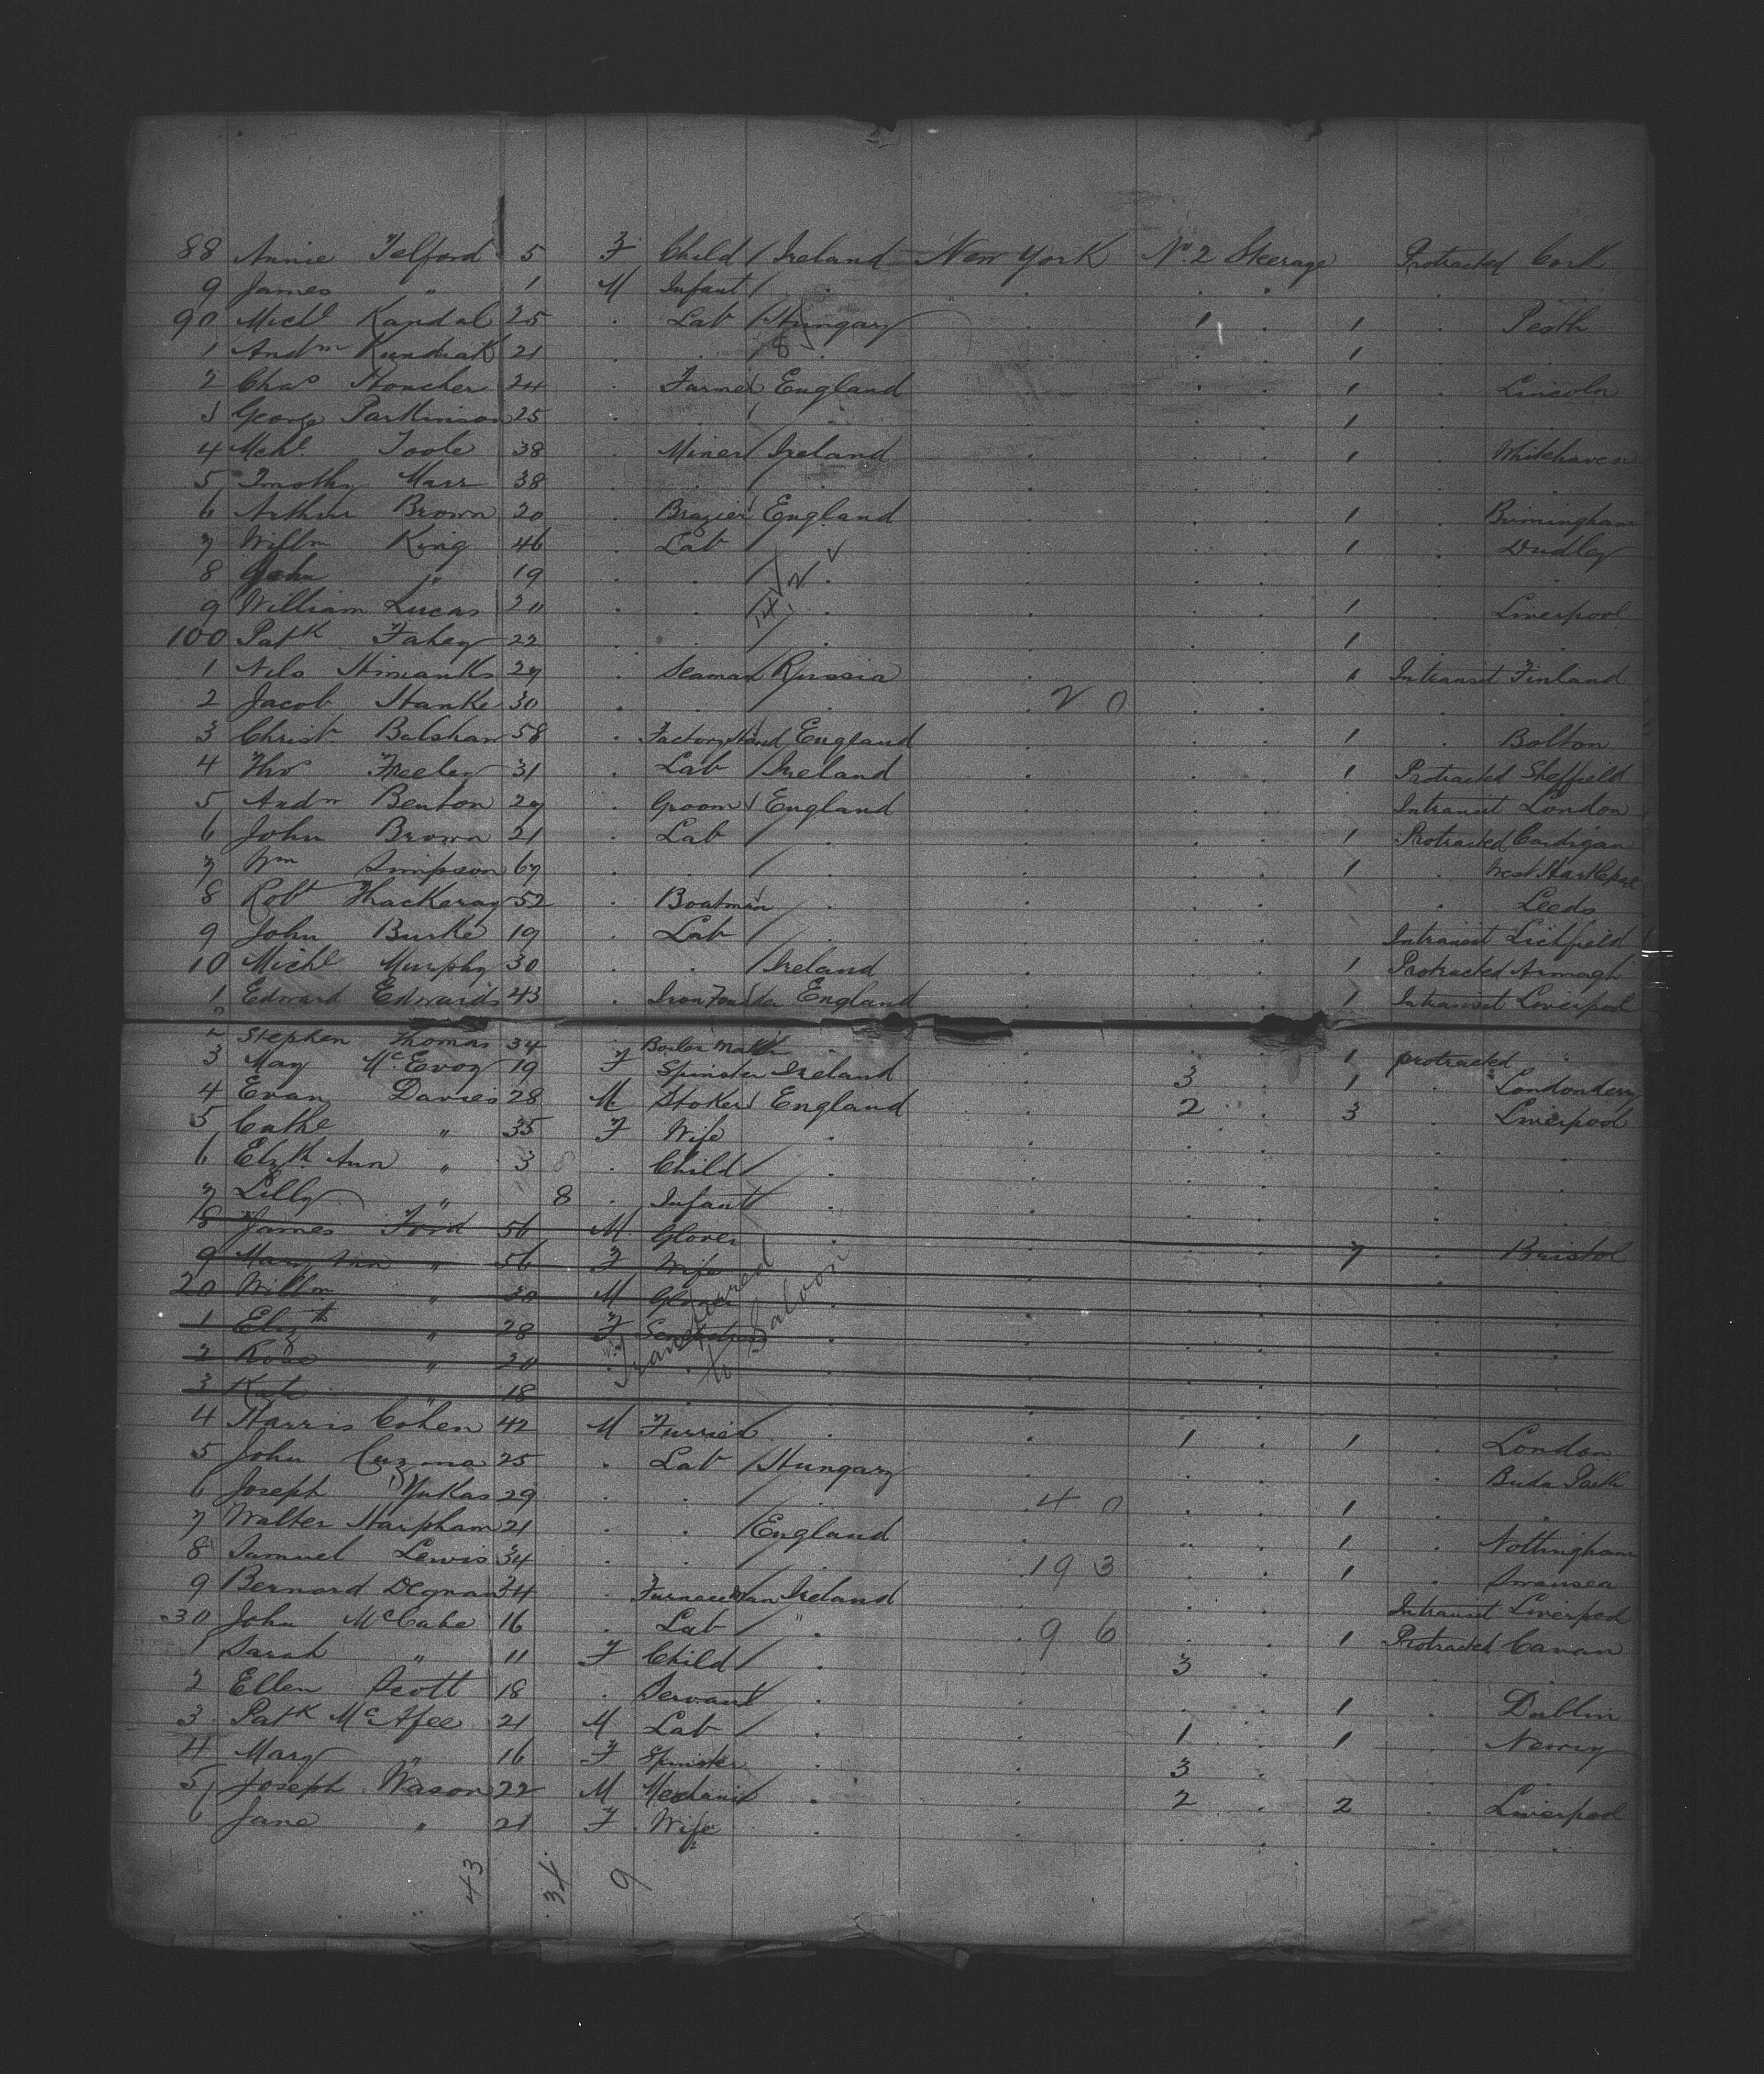 88 Annie Telford 5 F Child / Ireland New York No. 2 Steerage Protracted Cork
9 James " 1 M Infant / . . . . .
90 Michl Kandal 25 . Lab / Hungary . 1 . 1 . Pesth
1 Andw Kundrak 21 . . / 8 . . . . 1 . .
2 Chas 24 . Farmer England . . . 1 . Lincoln
3 George Parkinson 25 . . / . . . . 1 . .
4 Michl Toole 38 . Miner / Ireland . . . 1 . Whitehaven
5 Timothy Marr 38 . . / . . . . . .
6 Arthur Brown 20 . Brazier England . . . 1 . Birmingham
7 Willm King 46 . Lab / . . . 1 . Dudley
8 John " 19 . . / . . . . . .
9 William Lucas 20 . . / . . . . 1 . Liverpool
100 Patk Fahey 22 . . / . . . . 1 . .
1 Nils 29 . Seaman / Russia . . . 1 Intransit Finland
2 Jacob Hanke 30 . . / . . 20 . . . .
3 Christr Balshaw 58 . Factory Hand England . . . 1 . Bolton
4 Thos Freeley 31 . Lab / Ireland . . . 1 Protracted Sheffield
5 Andw Benton 29 . Groom / England . . . Intransit London
6 John Brown 21 . Lab / . . . . 1 Protracted Cardigan
7 Wm Simpson 67 . . / . . . . 1 . West Hartlepool
8 Robt Thackeray 52 . Boatman . . . . . Leeds
9 John Burke 19 . Lab / . . . . Intransit Lichfield
10 Michl Murphy 30 . . / Ireland . . . 1 Protracted Armagh
1 Edward Edwards 43 . Iron Founder England . . . 1 Intransit Liverpool
2 Stephen Thomas 34 . Boiler Maker . . . . 1 protracted "
3 May McEvoy 19 F Spinster Ireland . 3 . 1 . Londonderry
4 Evan Davies 28 M Stoker / England . 2 . 3 . Liverpool
5 Cathe " 35 F Wife . . . . . .
6 Elzth Ann " 3 . Child / . . . . . .
7 Lilly " 8 . Infant . . . . . .
8 James Ford 56 M Glover . . . . 7 . Bristol
9 Mary Ann " 56 F Wife . . . . . .
20 Willm " 30 M Glover . . . . . .
1 Elizth " 28 F Seamstress . . . . . .
2 Rose " 20 . . . . . . . .
3 Kate " 18 . . . . . . . .
Transferred to Saloon
4 Harris Cohen 42 M Furrier . . 1 . 1 . London
5 John Cuzma 25 . Lab / Hungary . . . . Buda Pesth
6 Joseph 29 . . / . . 40 . . 1 . .
7 Walter Harpham 21 . . / England . . . 1 . Nottingham
8 Samuel Lewis 34 . . / . . 193 . . 1 . Swansea
9 Bernard Degnan 34 . Furnace Man Ireland . . . Intransit Liverpool
30 John McCabe 16 . Lab / " . . 96 . . 1 Protracted Cavan
1 Sarah " 11 F Child / . . 3 . . .
2 Ellen Scott 18 . Servant . . . . 1 . Dublin
3 Patk McAfee 21 M Lab / . . 1 . 1 . Newry
4 Mary " 16 F Spinster . . 3 . . .
5 Joseph Wason 22 M Mechanic . . 2 . 2 . Liverpool
6 Jane " 21 F Wife . . . . . .
43 34 9